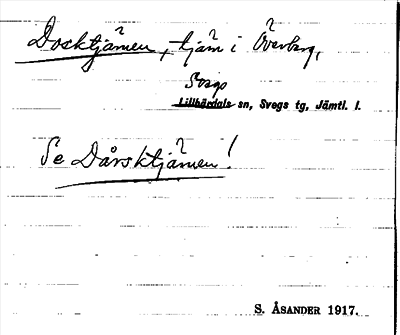 Dosktjärnen, tjärn i Överberg,
Svegs
Lillhärdals sn, Svegs tg, Jämtl. l.
Se Dårsktjärnen!
S. ÅSANDER 1917.